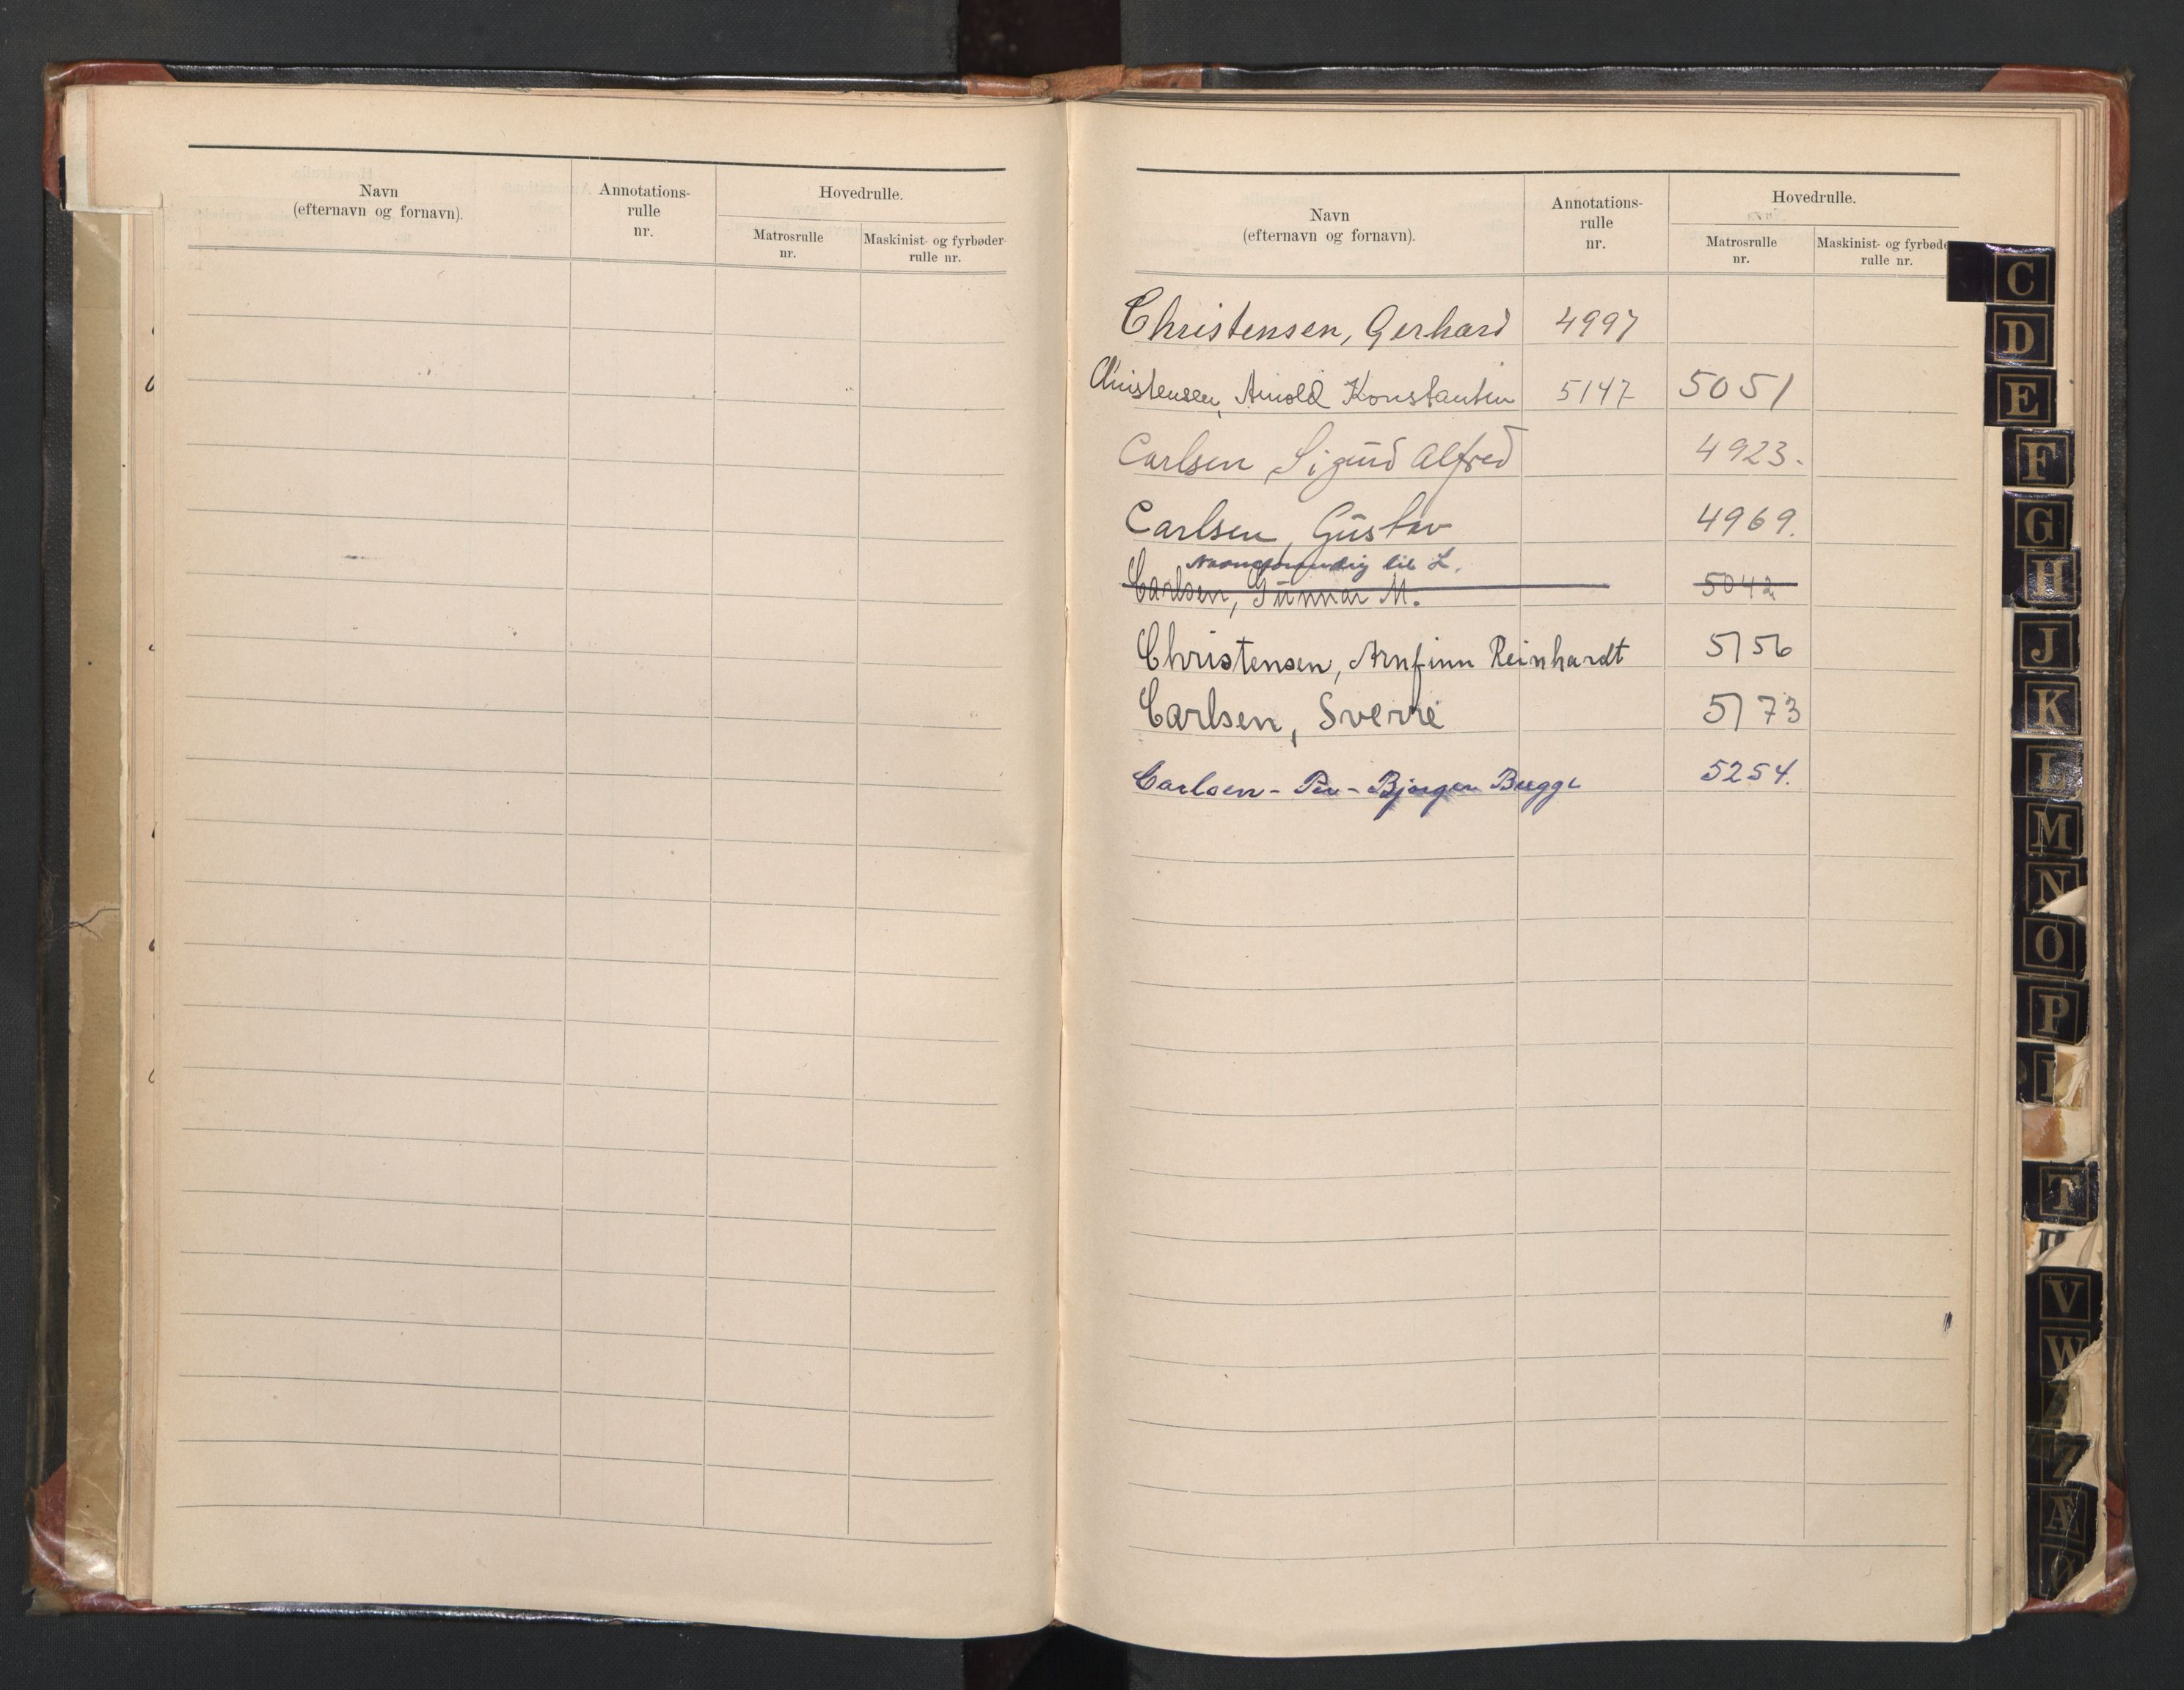 Navn
(efternavn og fornavn).
Annotations-
rulle
nr.
Hovedrulle.
Matrosrulle
nr.
Maskinist- og fyrbøder-
rulle nr.
Navn
(efternavn og fornavn).
Annotations-
rulle
nr.
Hovedrulle.
Matrosrulle
nr.
Maskinist- og fyrbøde
rulle nr.
Christensen, Gerhard 4997
Christensen, Arnold Konstantin 5147 5051
Carlsen, Sigurd Alfred 4923.
Carlsen, Gustav 4969.
til L.
Carlsen, Gunnar M. 5042
Christensen, Arnfinn Reinhardt 5156
Carlsen, Sverre 5173
Carlsen - Per - Bjørger Bugge 5254.
C
D
E
F
G
H
J
K
L
M
N
O
P
T
U
V
W
Z
Æ